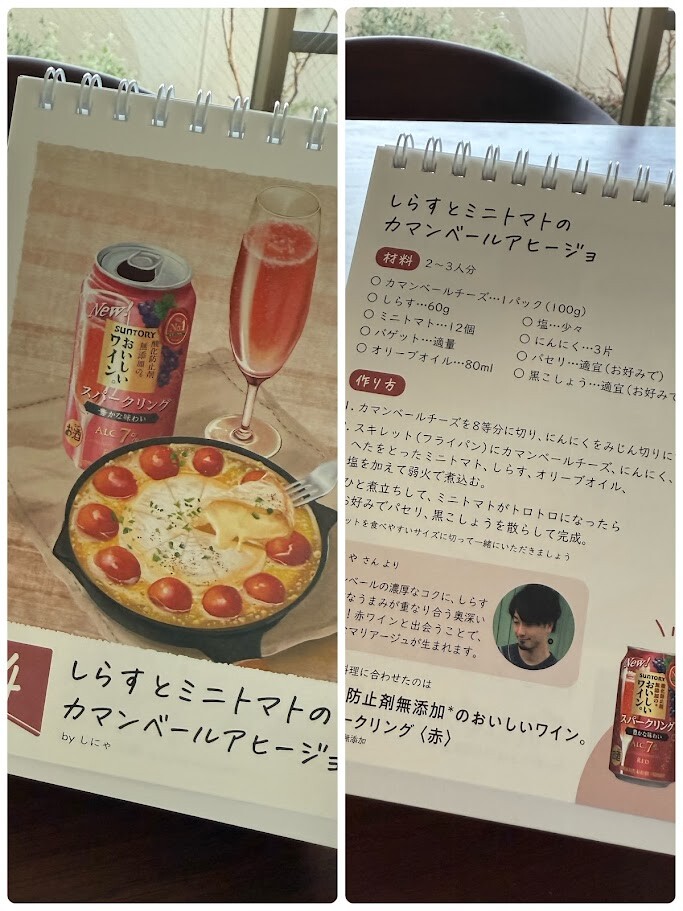 New!
SUNTORY
酸化防止剤
無添加の。
おいしい
ワイン。
スパークリング
豊かな味わい
ALC 7%
お酒
4
しらすとミニトマトの
カマンベールアヒージョ
by しにゃ
しらすとミニトマトの
カマンベールアヒージョ
材料 2〜3人分
○ カマンベールチーズ…1パック(100g)
○ しらす…60g
○ ミニトマト…12個
○ バゲット…適量
○ オリーブオイル…80ml
○ 塩…少々
○ にんにく…3片
○ パセリ…適宜(お好みで)
○ 黒こしょう…適宜(お好みで
作り方
1. カマンベールチーズを8等分に切り、にんにくをみじん切りに
スキレット(フライパン)にカマンベールチーズ、にんにく、
へたをとったミニトマト、しらす、オリーブオイル、
塩を加えて弱火で煮込む。
ひと煮立ちして、ミニトマトがトロトロになったら
お好みでパセリ、黒こしょうを散らして完成。
ットを食べやすいサイズに切って一緒にいただきましょう
や さんより
ベールの濃厚なコクに、しらす
なうまみが重なり合う奥深い
！赤ワインと出会うことで、
マリアージュが生まれます。
料理に合わせたのは
防止剤無添加*のおいしいワイン。
ークリング〈赤〉
無添加
New!
SUNTORY
おいしい
ワイン。
スパークリング
豊かな味わい
ALC 7%
RED